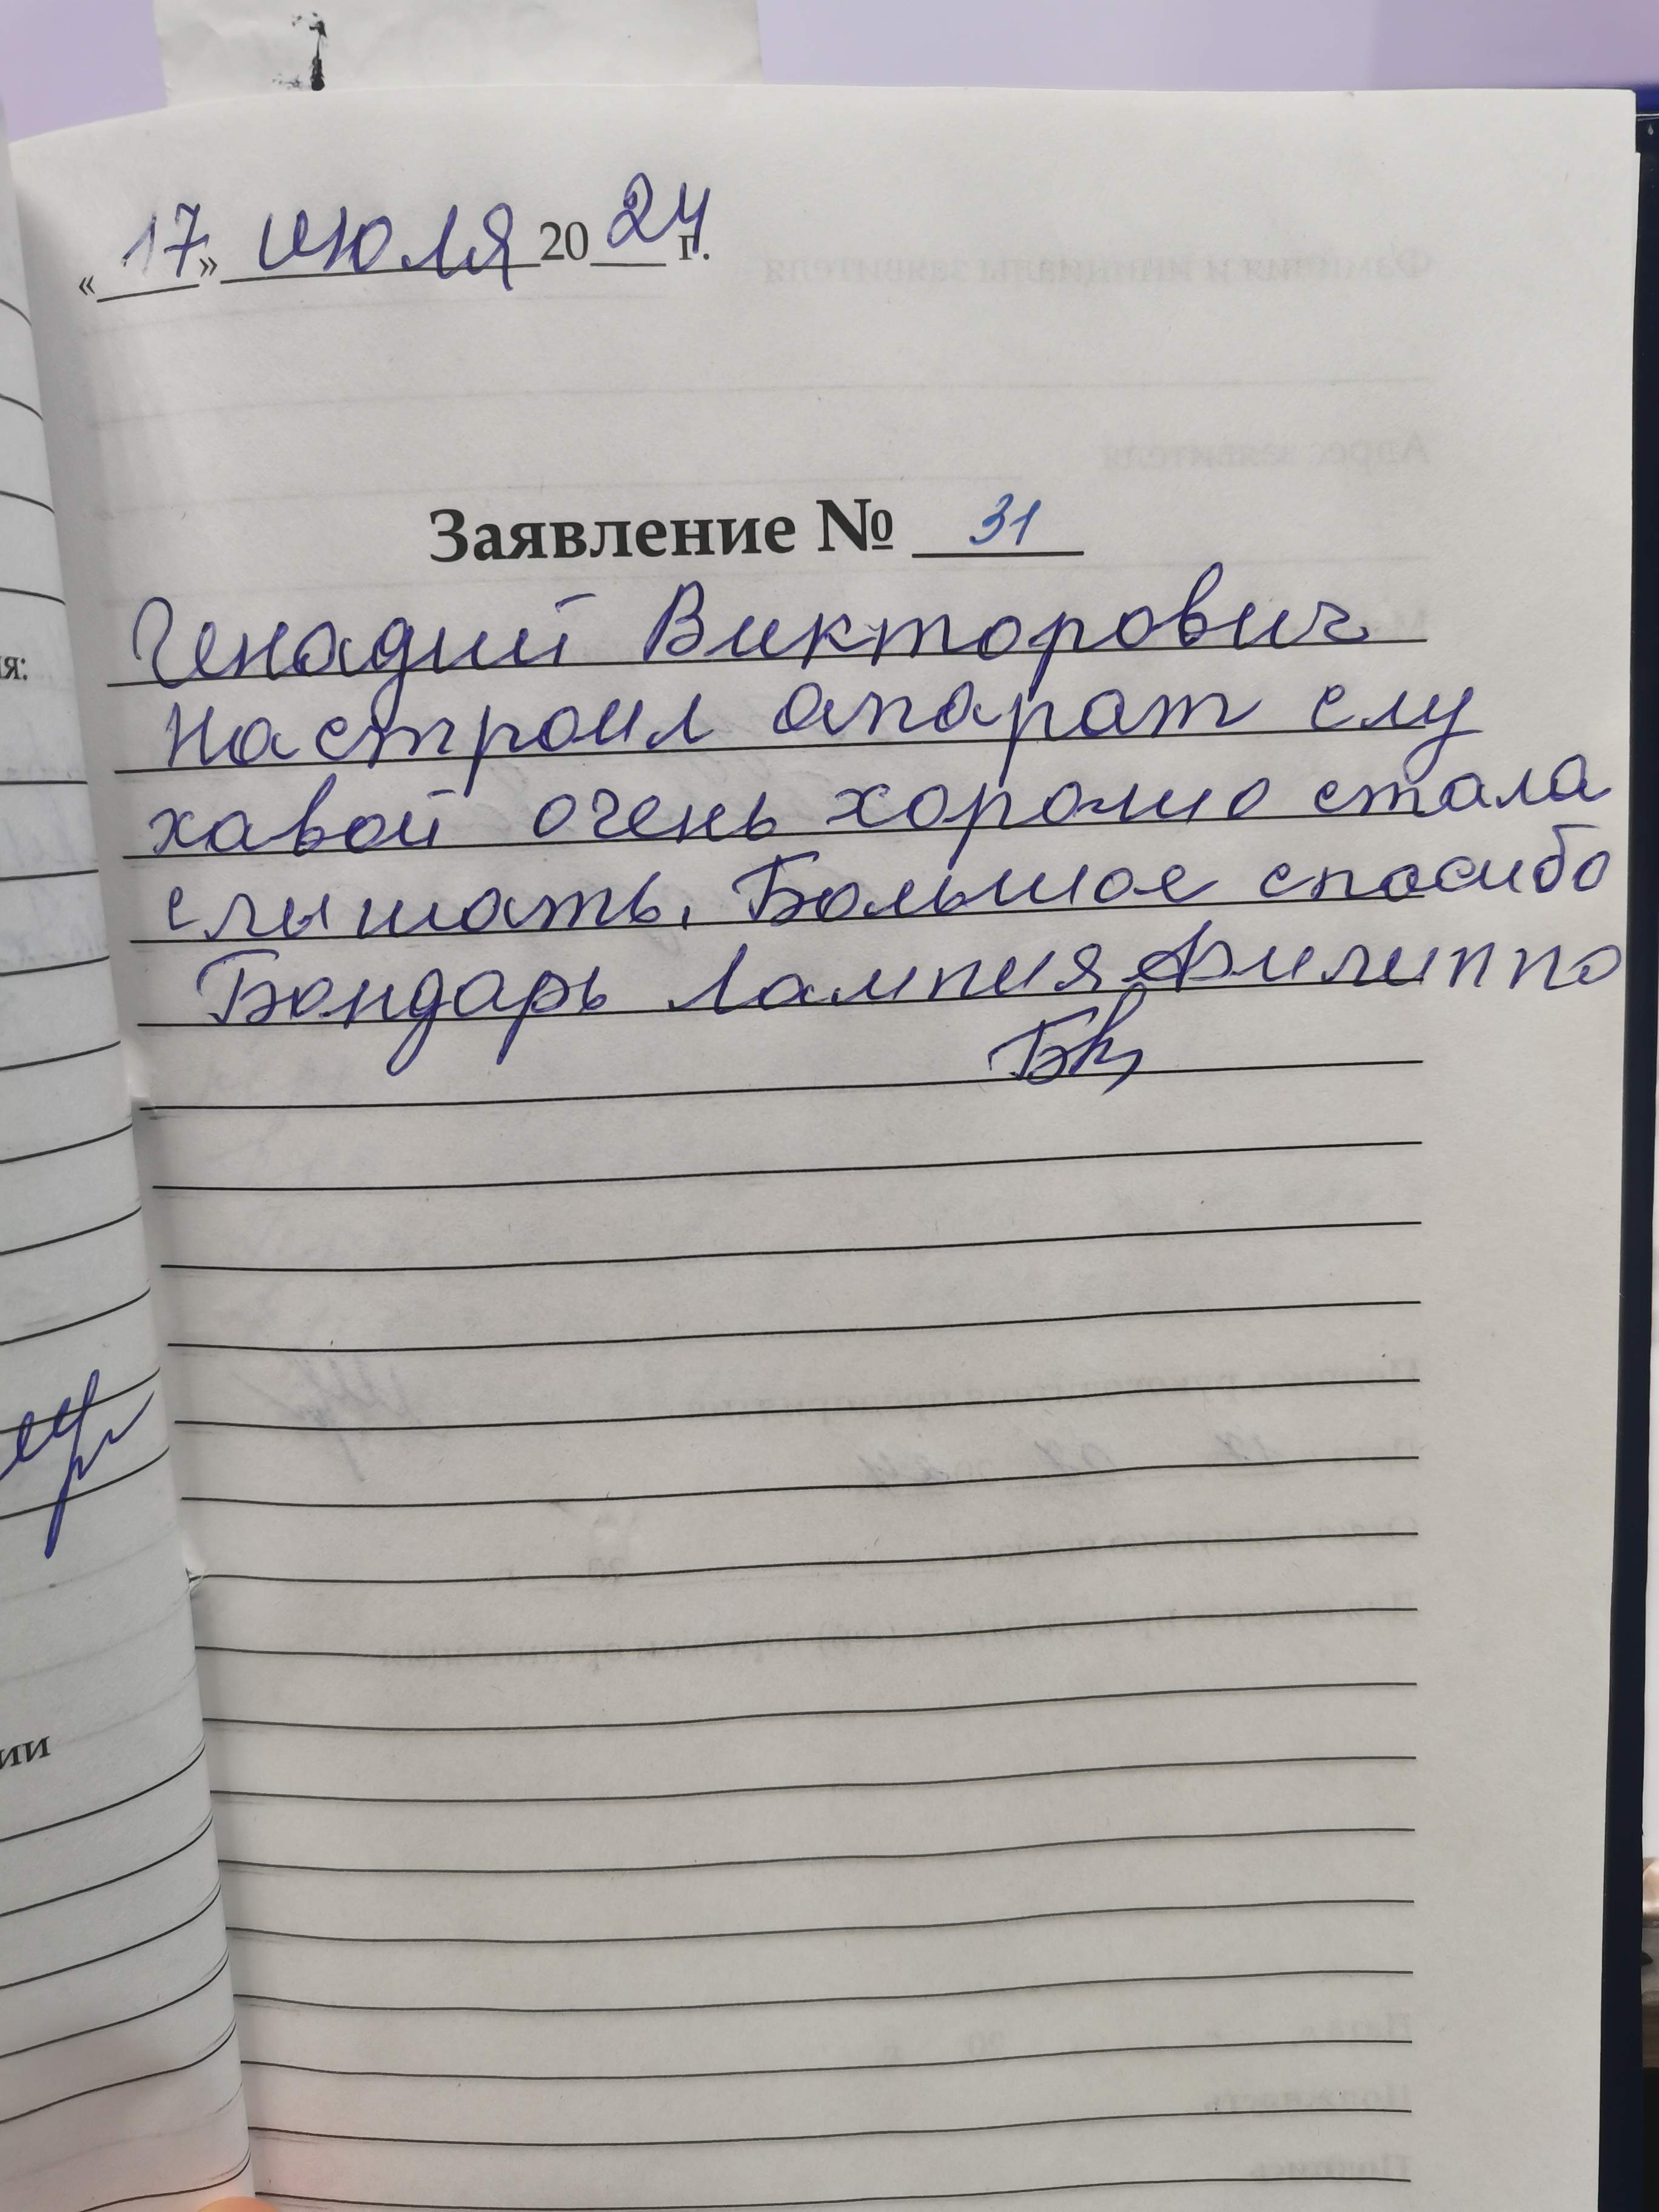 «17» июля 2024 г.
Заявление № 31
Генадий Викторович
настроил апарат слу
хавой очень хорошо стала
слышать. Большое спасибо
Бондарь Лампия Филиппо
я:
ии